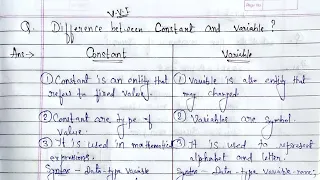 V.V.I
Q. Difference between Constant and Variable ?
Ans:-> Constant
Variable
① Constant is an entity that
refers to fixed value.
② Constant are type of
value.
③ It is used in mathematical
expressions.
Syntax - Data-type Variable
① Variable is also entity that
may changed
② Variables are symbol.
③ It is used to represent
alphabet and letter.
Syntax - Data-type Variable-name;